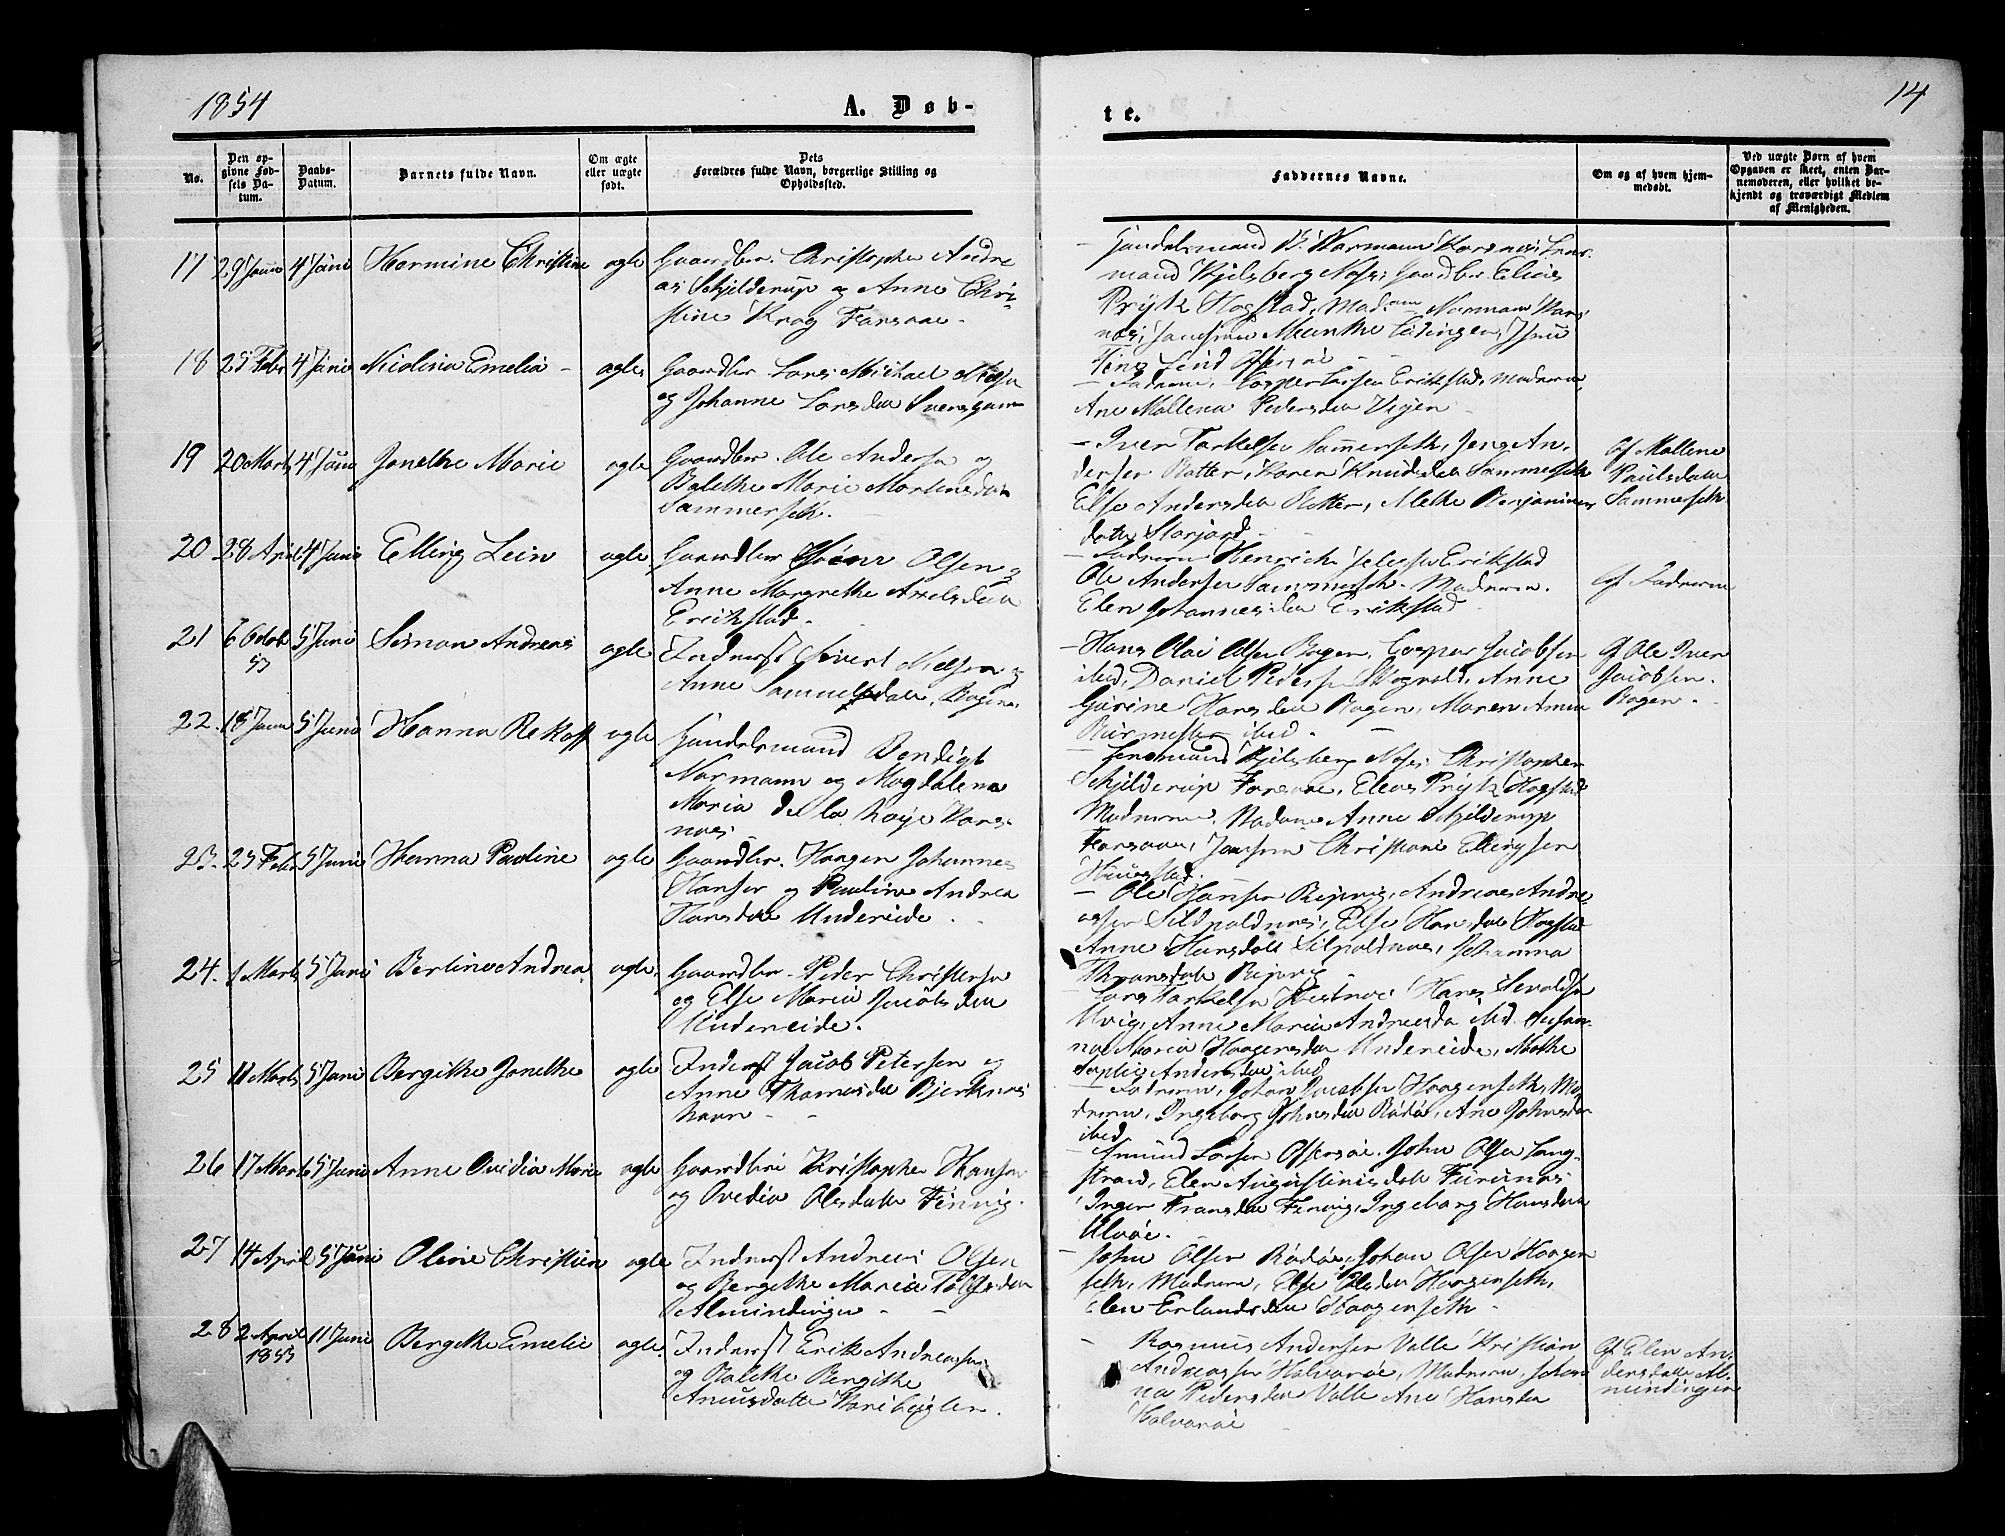 1854
A. Døb-
te.
14
No.
Den op-
givne Fød-
sels Da-
tum.
Daabs-
Datum.
Barnets fulde Navn.
Om ægte
eller uægte
født.
Dets
Forældres fulde Navn, borgerlige Stilling og
Opholdssted.
Faddernes Navne.
Om og af hvem hjem-
medøbt.
Ved uægte Børn af hvem
Opgaven er skeet, enten Bar-
nemoderen, eller hvilket be-
kjendt og troværdigt Medlem
af Menigheden.
17 29 Janu 4 Juni Hermine Christine ægte Gaardbr. Christopher Andre
as Schjelderup og Anne Chri-
stine Krog Forsaae.
Handelsmand B. Normann Korsnæs, Lens-
mand Kjelsberg Næs, Gaardbr Elias
Prytz Hogstad, Madam Normann Kors-
næs, Jomfru Munthe Lødingen, Jfru
Lind Offersøe
18 25 Febr 4 Juni Nicolina Emelia ægte Gaardbr Lars Michael
og Johanne Larsdtr
Fadrene, Casper Larsen Erikstad, Modrene
Ane Mallena Pedersdtr
19 20 Marts 4 Juni Jonethe Marie ægte Gaardbr. Ole Andersen og
Balethe Marie Mortensdatr
Sammerseth.
Iver Torkelsen Sammerseth, Jens An-
dersen Rotter, Karen Knudsdtr Sammerseth
Else Andersdtr Rotter, Alethe Benjamins
datter Storjord
Af Mallene
Paulsdatter
Sammerseth
20 28 April 4 Juni Elling Lein ægte Gaardbr Olsen og
Anne Margrethe Axelsdatr
Erikstad.
Fadrene Henrich Erikstad
Ole Andersen Sammerseth. Modrene.
Elen Johannesdtr Erikstad
Af Fadrene
21 6 Octob
53 5 Juni Simon Andreas ægte Inderst Sivert Nielsen og
Anne Samuelsdatr, Bogen.
Hans Olai Olsen Bogen, Casper Jacobsen
ibid, Daniel Pedersen Skogvold, Anne
Gurine Hansdtr Bogen, Maren Anna
ibid.
Af Ole Iver
Jacobsen.
Bogen.
22. 18 Janu 5 Juni Hanna Rekoff ægte Handelsmand Bendigt
Normann og Magdalena
Maria de la Kors-
næs
Lensmand Kjelsberg Næs, Christopher
Schjelderup Forsaae, Elias Prytz Hogstad
Modrene, Madame Anne Schjelderup
Forsaae, Jomfru Christiane Ellingsen
23. 25 Febr 5 Juni Hanna Pauline ægte Gaardbr. Haagen Johannes
Hansen og Pauline Andrea
Hansdtr Undereide.
Ole Hansen Ripvig, Andreas Andre-
asen Sildpoldnes, Else Hansdatr Hogstad
Anne Hansdatr Silpoldnæs, Johanna
Ripvig
24. 1 Marts 5 Juni Berline Andrea ægte Gaardbr. Peder Christensen
og Else Maria Jacobsdatr
Undereide.
Lars Torkelsen Hestnæs Hans Sevaldsen
Ulvig, Anne Maria Andreasda ibid. Susan-
na Maria Haagensdtr Undereide, Mathe
Sophie Andersdtr ibid
25 11 Marts 5 Juni Bergithe Jonethe ægte Inderst Jacob Petersen og
Anne Thomasdtr Bjerknæs
havn
Fadrene, Johan Jacobsen Haagenseth, Mo-
drene, Ingeborg Johnsdtr Rødøe, Ane Johnsdtr
ibid
26 17 Marts 5 Juni Anne Ovidia Marie ægte Gaardbr Kristopher Hansen
og Ovedia Olsdatter Finvig.
Amund Larsen Offersøe, John Olsen Lang-
strand, Elen Augustinisdatr Furunæs
Inger Fransdtr Finvig, Ingeborg Hansdtr
Ulvøe.
27 14 April 5 Juni Oline Christine ægte Inderst Andreas Olsen
og Bergethe Maria Tollefsdtr
Almindingen
John Olsen Rødøe, Johan Olsen Haagen
seth, Modrene, Else Olsdtr Haagenseth,
Elen Erlandsdtr Haagenseth
28 2 April
1853 11 Juni Bergethe Emelie ægte. Inderst Erik Andreassen
og Balethe Bergithe
Rasmus Andersen Valle Kristian
Andreassen Halvarøe, Modrene, Johan
na Pedersdtr Valle Ane Hansdtr
Halvarøe
Af Elen An-
dersdatter Al-
mindingen